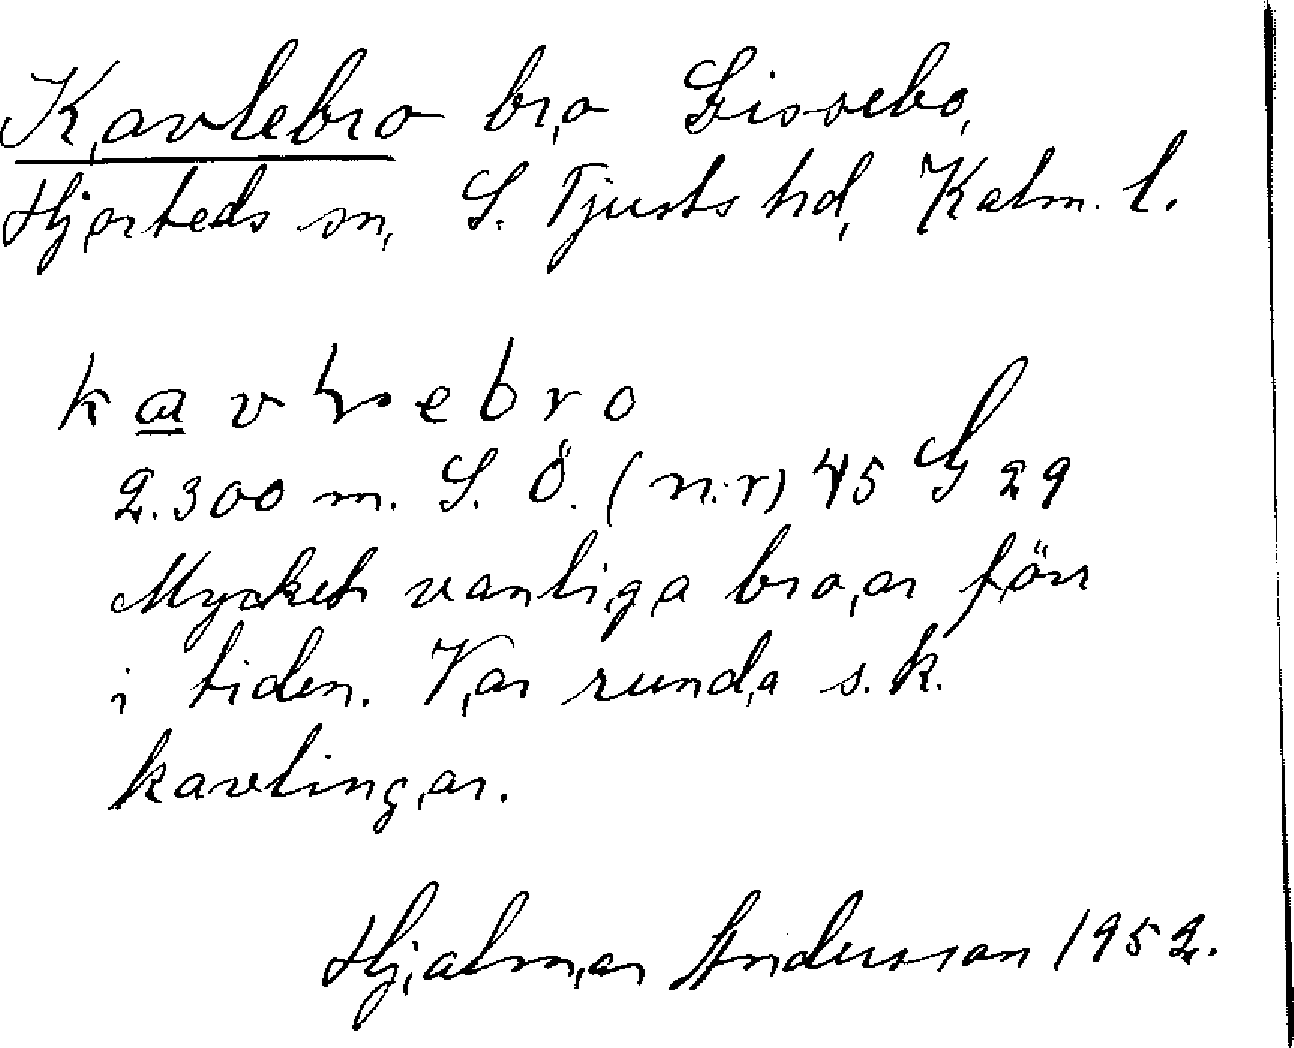 Kavlebro bro Gissebo,
Hjorteds sn, S. Tjusts hd, Kalm. l.
kavlebro
2.300 m. S. Ö. (n:r) 45 G 29
Mycket vanliga broar förr
i tiden. Var runda s.k.
kavlingar.
Hjalmar Andersson 1952.